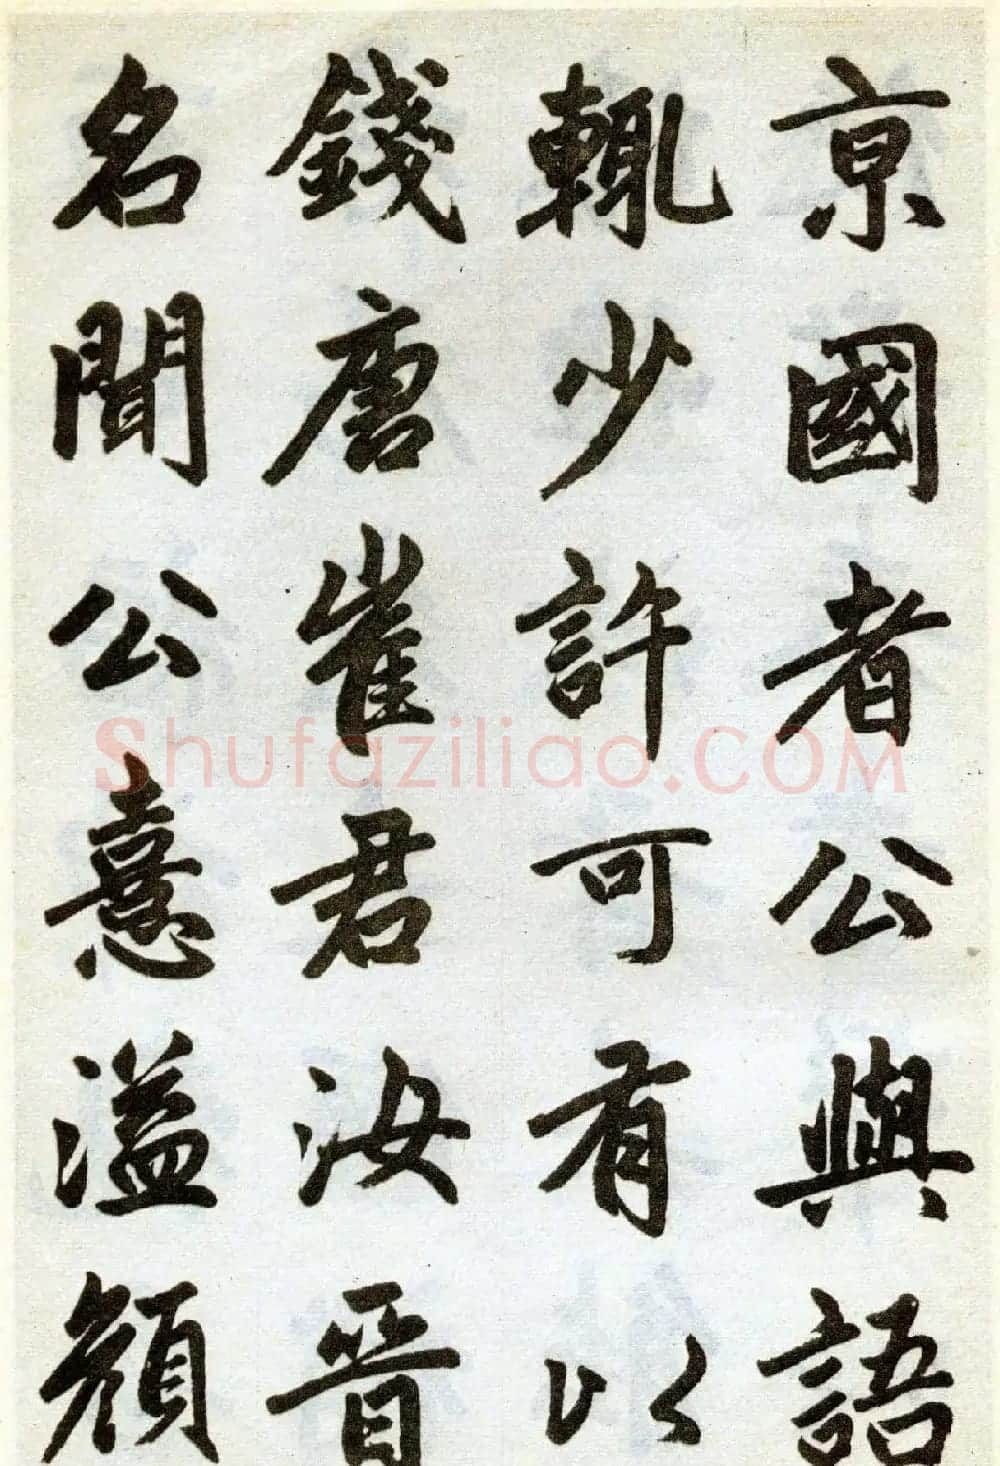 京國者公與語
輒少許可有以
錢唐崔君汝晋
名聞公憙溢顏
Shufaziliao.COM